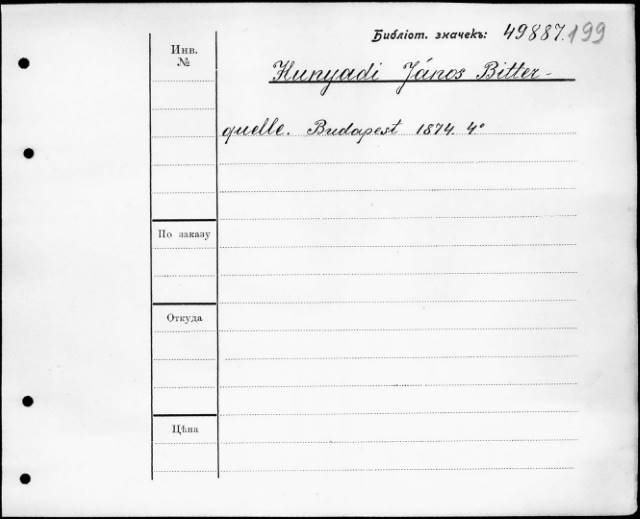 Библіот. значекъ: 49887.199
Инв.
№
Hunyadi János Bitter-
quelle. Budapest 1874. 4°
По заказу
Откуда
Цѣна